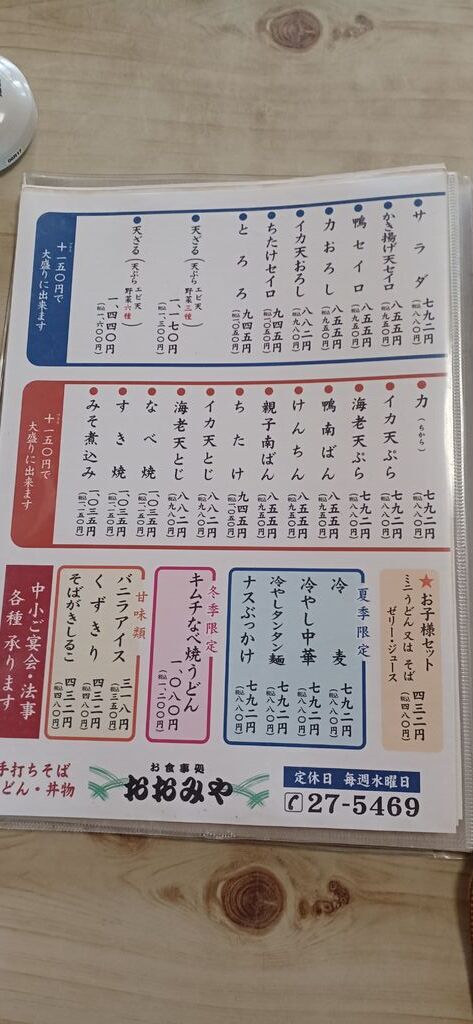 サラダ 七九二円
(税込八八〇円)
かき揚げ天セイロ 八五五円
(税込九五〇円)
鴨セイロ 八五五円
(税込九五〇円)
力おろし 八五五円
(税込九五〇円)
イカ天おろし 八八二円
(税込九八〇円)
ちたけセイロ 九四五円
(税込一〇五〇円)
とろろ 九四五円
(税込一〇五〇円)
天ざる(天ぷら エビ天 野菜三種) 一、一七〇円
(税込一、三〇〇円)
天ざる(天ぷら エビ天 野菜六種) 一、四四〇円
(税込一、六〇〇円)
十一五〇円で
大盛りに出来ます
力(ちから) 七九二円
(税込八八〇円)
イカ天ぷら 七九二円
(税込八八〇円)
海老天ぷら 七九二円
(税込八八〇円)
鴨南ばん 八五五円
(税込九五〇円)
けんちん 八五五円
(税込九五〇円)
親子南ばん 八五五円
(税込九五〇円)
ちたけ 九四五円
(税込一〇五〇円)
イカ天とじ 八八二円
(税込九八〇円)
海老天とじ 八八二円
(税込九八〇円)
なべ焼 一、〇三五円
(税込一一五〇円)
すき焼 一、〇三五円
(税込一一五〇円)
みそ煮込み 一、〇三五円
(税込一一五〇円)
十一五〇円で
大盛りに出来ます
★お子様セット
ミニうどん又はそば
ゼリー・ジュース
四三二円
(税込四八〇円)
夏季限定
冷麦 七九二円
(税込八八〇円)
冷やし中華 七九二円
(税込八八〇円)
冷やしタンタン麺 七九二円
(税込八八〇円)
ナスぶっかけ 七九二円
(税込八八〇円)
冬季限定
キムチなべ焼うどん
一、〇八〇円
(税込一、二〇〇円)
甘味類
バニラアイス 三一八円
(税込三五〇円)
くずきり 四三二円
(税込四八〇円)
そばがきしるこ 四三二円
(税込四八〇円)
中小ご宴会・法事
各種承ります
手打ちそば
どん・丼物
お食事処
おおみや
定休日 毎週水曜日
27-5469